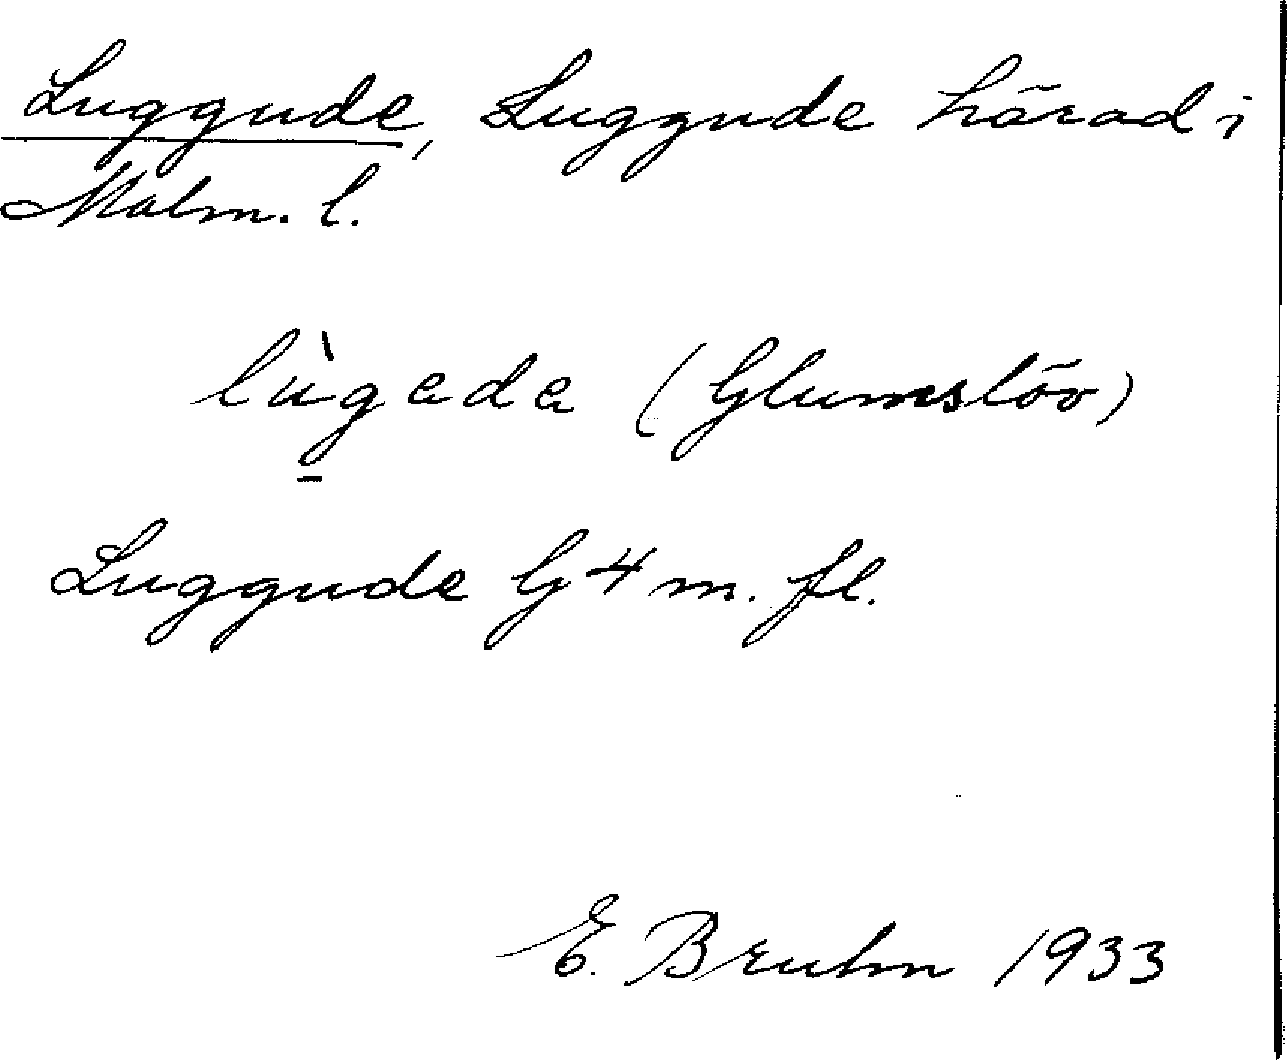 Luggude, Luggude härad i
Malm. l.
lùg̱ada (Glumslöv)
Luggude G 4 m. fl.
E. Bruhn 1933